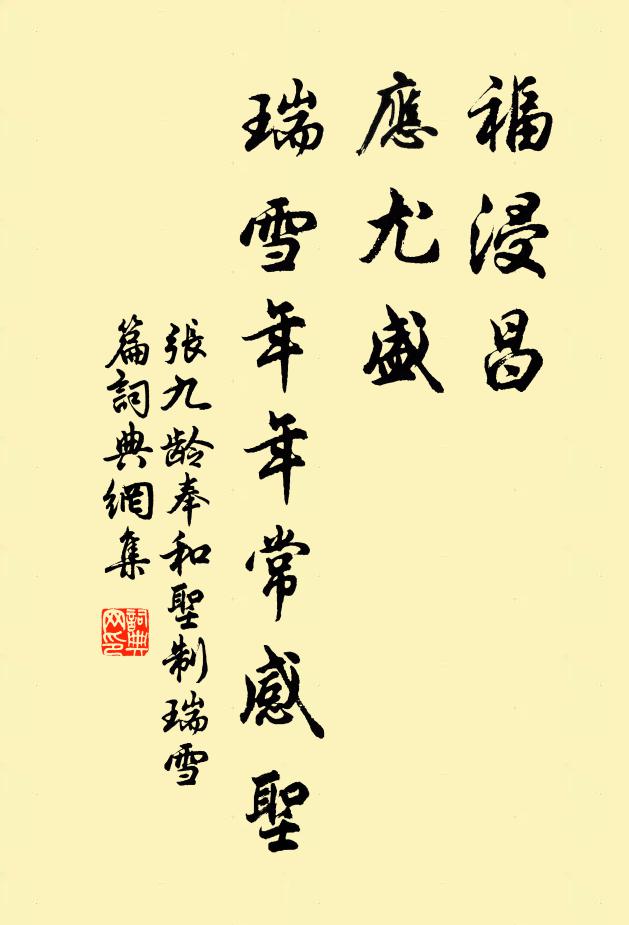 福浸昌
應尤盛
瑞雪年年常感聖
張九龄奉和聖制瑞雪
篇詞典網集
詞典
网印